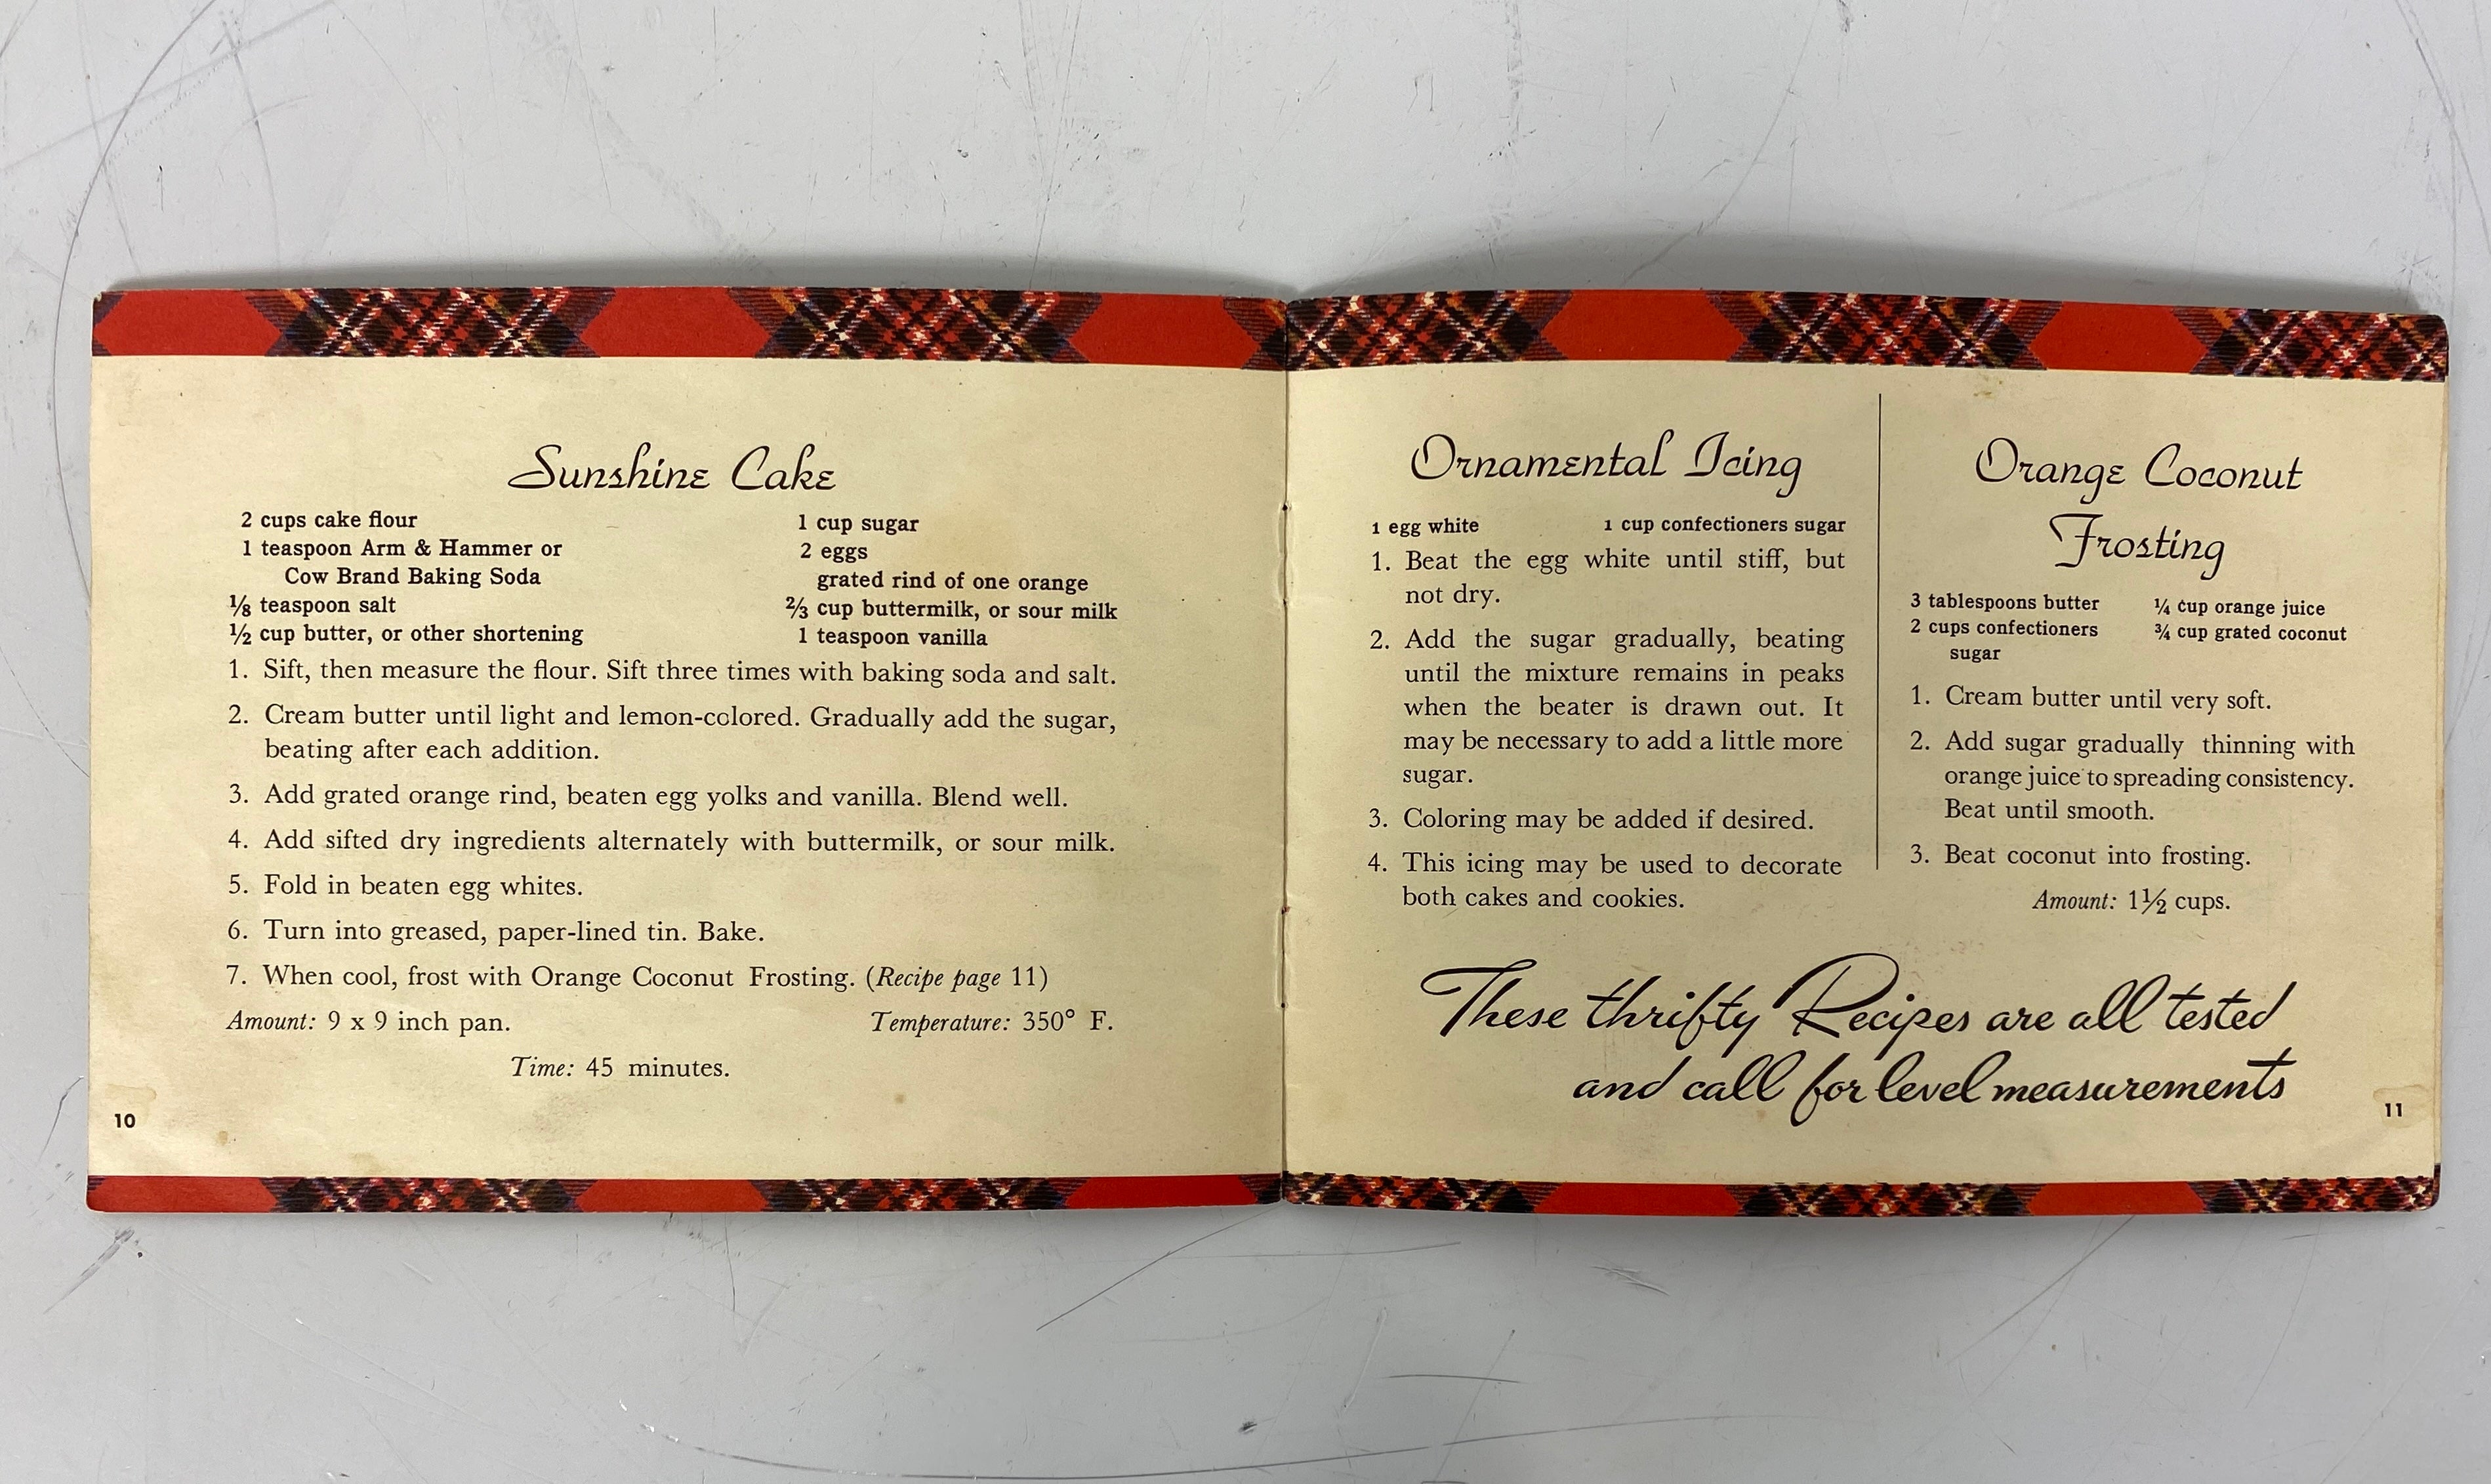 Sunshine Cake
2 cups cake flour
1 teaspoon Arm & Hammer or
Cow Brand Baking Soda
⅛ teaspoon salt
½ cup butter, or other shortening
1 cup sugar
2 eggs
grated rind of one orange
⅔ cup buttermilk, or sour milk
1 teaspoon vanilla
1. Sift, then measure the flour. Sift three times with baking soda and salt.
2. Cream butter until light and lemon-colored. Gradually add the sugar,
beating after each addition.
3. Add grated orange rind, beaten egg yolks and vanilla. Blend well.
4. Add sifted dry ingredients alternately with buttermilk, or sour milk.
5. Fold in beaten egg whites.
6. Turn into greased, paper-lined tin. Bake.
7. When cool, frost with Orange Coconut Frosting. (Recipe page 11)
Amount: 9 x 9 inch pan. Temperature: 350° F.
Time: 45 minutes.
10
Ornamental Icing
1 egg white 1 cup confectioners sugar
1. Beat the egg white until stiff, but
not dry.
2. Add the sugar gradually, beating
until the mixture remains in peaks
when the beater is drawn out. It
may be necessary to add a little more
sugar.
3. Coloring may be added if desired.
4. This icing may be used to decorate
both cakes and cookies.
Orange Coconut
Frosting
3 tablespoons butter
2 cups confectioners
sugar
¼ cup orange juice
¾ cup grated coconut
1. Cream butter until very soft.
2. Add sugar gradually thinning with
orange juice to spreading consistency.
Beat until smooth.
3. Beat coconut into frosting.
Amount: 1½ cups.
These thrifty Recipes are all tested
and call for level measurements
11